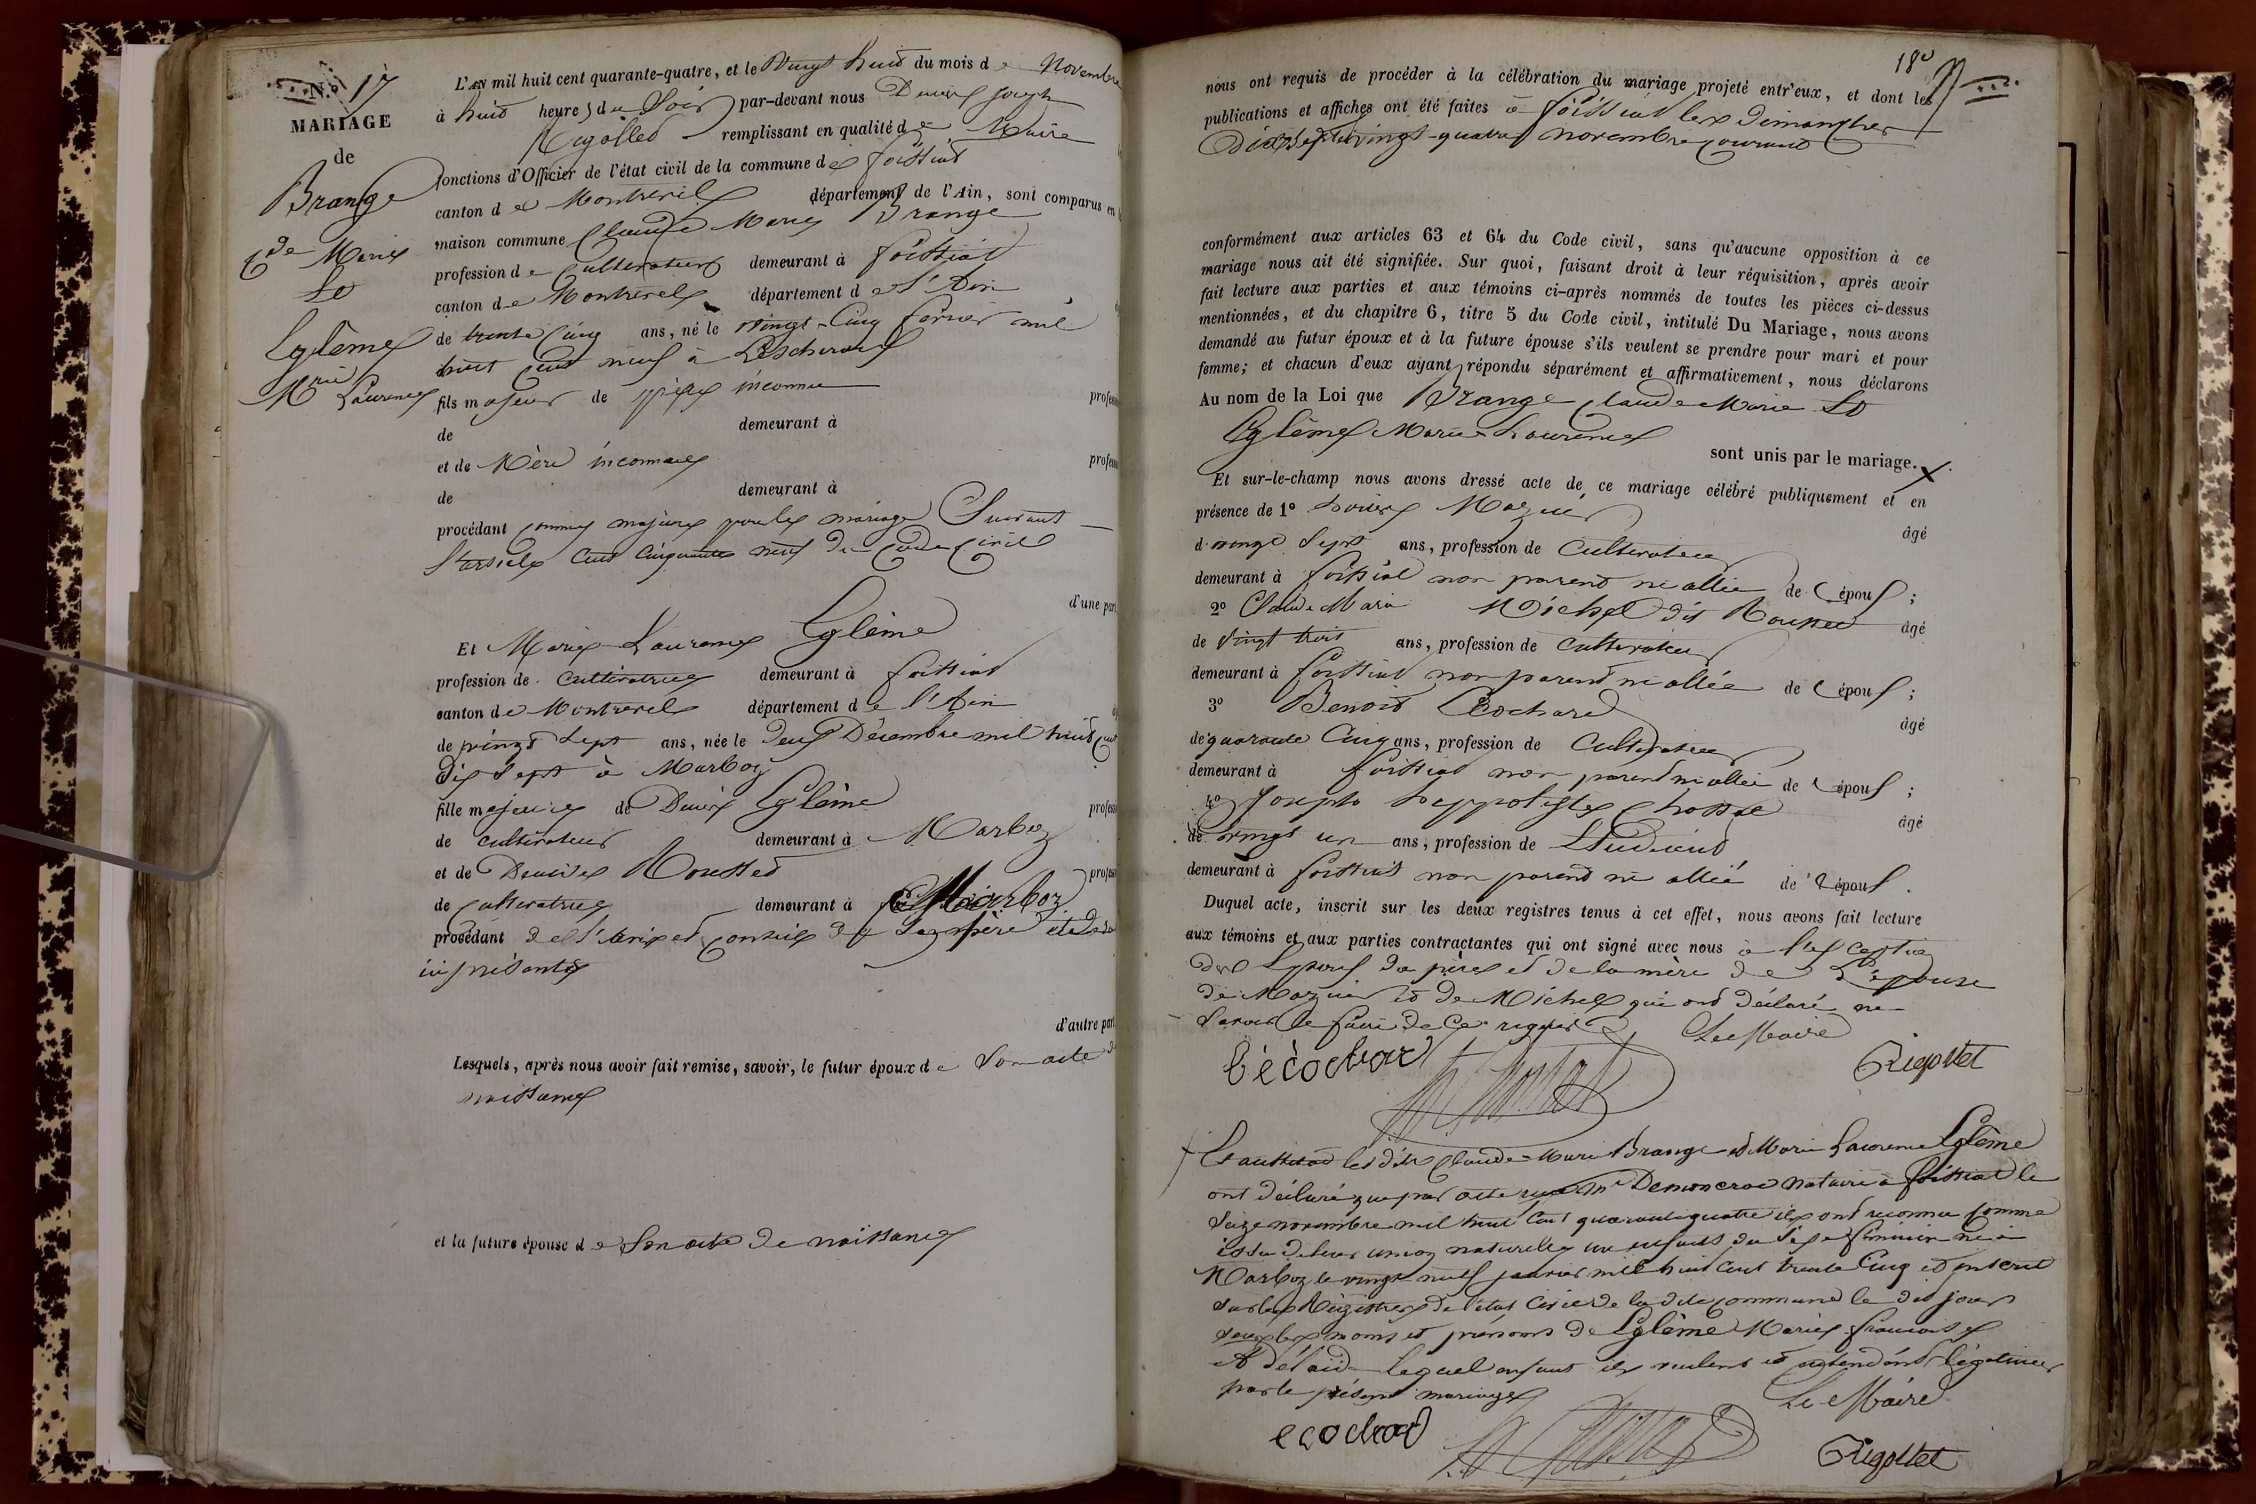 N.º 17
MARIAGE
de
Brange
Cde Marie
Et
Eglème
Marie Laurence
L'AN mil huit cent quarante-quatre, et le Vingt huit du mois de Novembre
à huit heures du Soir par-devant nous Denis Joseph
Rigollet remplissant en qualité de Maire
fonctions d'Officier de l'état civil de la commune de foissiat
canton de Montrevel département de l'Ain, sont comparus en
maison commune Claude Marie Brange
profession de Cultivateur demeurant à foissiat
canton de Montrevel département de l'Ain
de trente Cinq ans, né le vingt-Cinq février mil
huit Cent neuf à Lescheroux
fils majeur de père inconnu profes
de demeurant à
et de Mère inconnue profes
de demeurant à
procédant comme majeur pour le mariage Suivant
l'article Cent Cinquante neuf du Code Civil
d'une part
Et Marie Laurence Eglème
profession de cultivatrice demeurant à foissiat
canton de Montrevel département de l'Ain
de vingt Sept ans, née le deux Décembre mil huit Cent
dix Sept à Marboz
fille majeure de Denis Eglème profess
de cultivateur demeurant à Marboz
et de Denise Rousset profess
de cultivatrice demeurant à Marboz
procédant de l'avis et conseil de Ses père et
ici présents
d'autre part
Lesquels, après nous avoir fait remise, savoir, le futur époux de Son acte de
naissance
et la future épouse de Son acte de naissance
180
nous ont requis de procéder à la célébration du mariage projeté entr'eux, et dont les
publications et affiches ont été faites à foissiat les Dimanches
Dix Sept vingt-quatre novembre courant
conformément aux articles 63 et 64 du Code civil, sans qu'aucune opposition à ce
mariage nous ait été signifiée. Sur quoi, faisant droit à leur réquisition, après avoir
fait lecture aux parties et aux témoins ci-après nommés de toutes les pièces ci-dessus
mentionnées, et du chapitre 6, titre 5 du Code civil, intitulé Du Mariage, nous avons
demandé au futur époux et à la future épouse s'ils veulent se prendre pour mari et pour
femme; et chacun d'eux ayant répondu séparément et affirmativement, nous déclarons
Au nom de la Loi que Brange Claude Marie Et
Eglème Marie Laurence
sont unis par le mariage. X
Et sur-le-champ nous avons dressé acte de ce mariage célébré publiquement et en
présence de 1º Mazuir âgé
de vingt Sept ans, profession de Cultivateur
demeurant à foissiat non parent ni allié de l'époux;
2º Claude Marie Michel dit Rousset âgé
de vingt trois ans, profession de Cultivateur
demeurant à foissiat non parent ni allié de l'époux;
3º Benoit Ecochard âgé
de quarante Cinq ans, profession de Cultivateur
demeurant à foissiat non parent ni allié de l'époux;
4º Joseph hyppolite Chossat âgé
de vingt un ans, profession de Etudiant
demeurant à foissiat non parent ni allié de l'époux.
Duquel acte, inscrit sur les deux registres tenus à cet effet, nous avons fait lecture
aux témoins et aux parties contractantes qui ont signé avec nous à l'exception
des Epoux du père et de la mère de L'épouse
de Mazuir et de Michel qui ont déclaré ne
Savoir le faire de ce requis
Le Maire
b ècochard
Rigollet
Et aussitôt les dits Claude Marie Brange et Marie Laurence Eglème
ont déclaré que par acte reçu Me notaire à foissiat le
Seize novembre mil huit Cent quarante quatre ils ont reconnu comme
issu de leur union naturelle un enfant du Sexe féminin né à
Marboz le vingt neuf janvier mil huit Cent trente Cinq et inscrit
Sur les Registres de l'état Civil de la dite commune le dit jour
sous les noms et prénoms de Eglème Marie françoise
Adélaïde lequel enfant ils veulent et entendent légitimer
par le présent mariage
Le Maire
ecochard
Rigollet